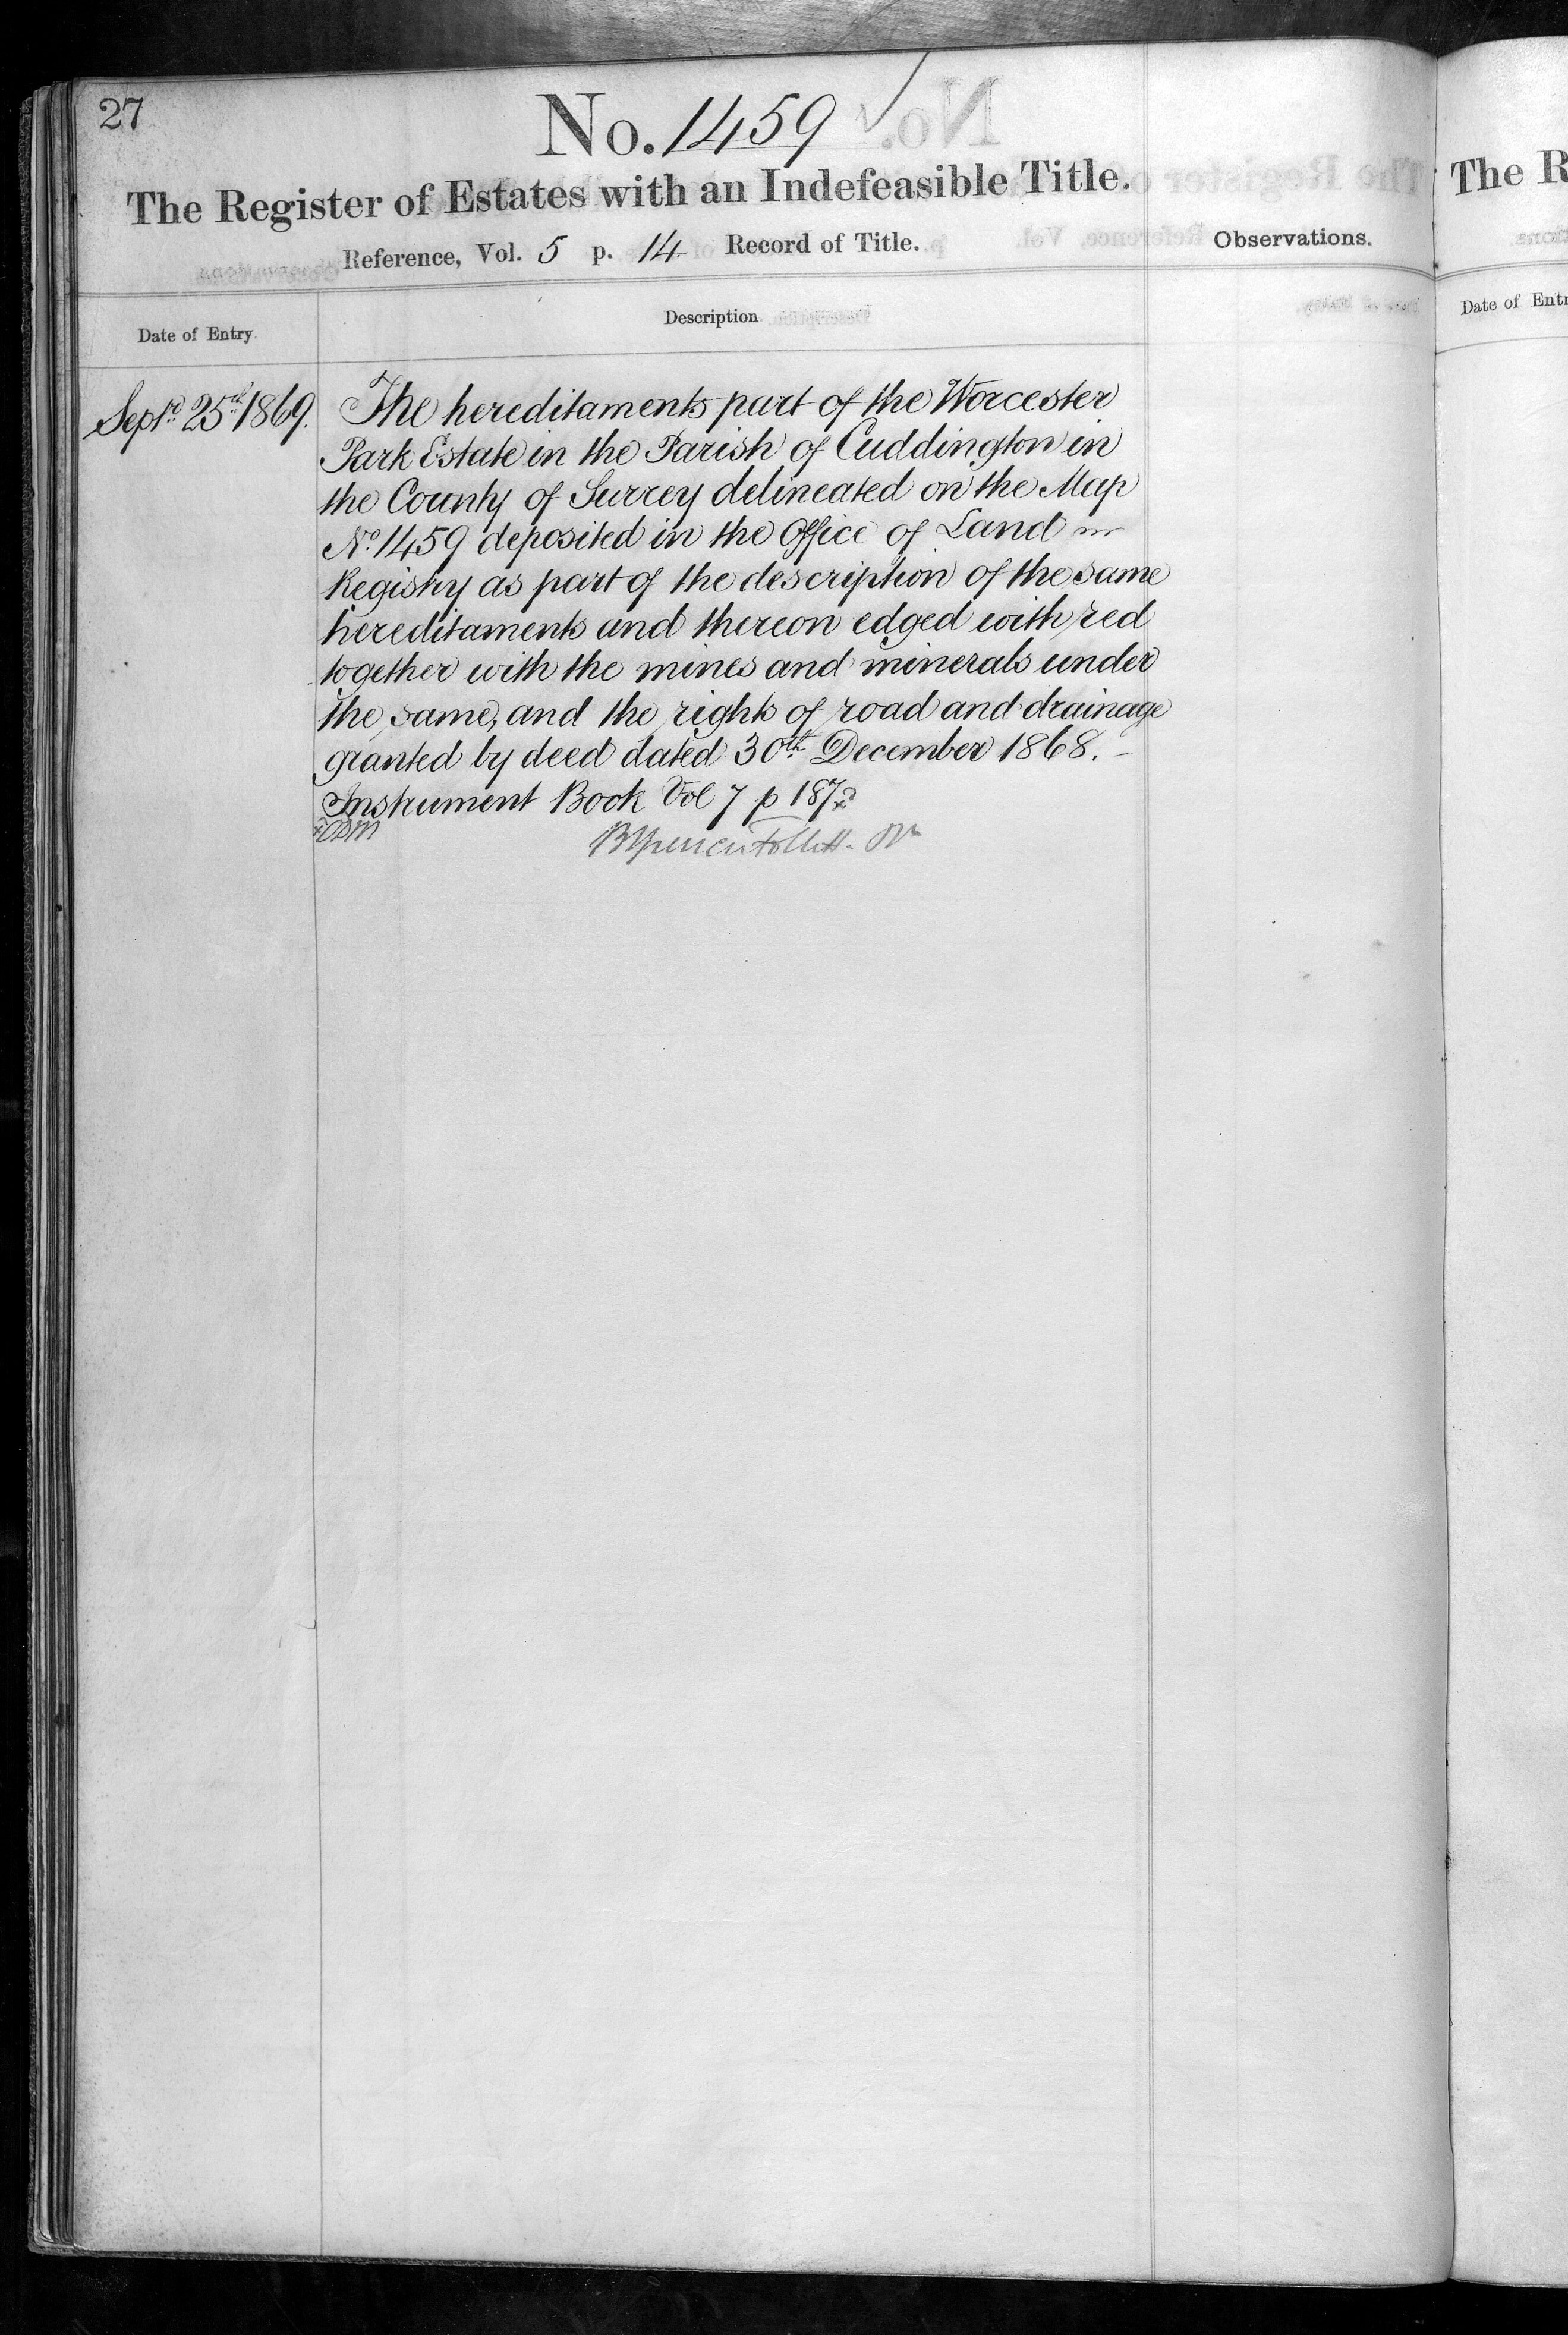 27
No. 1459
The Register of Estates with an Indefeasible Title.
Reference, Vol. 5 p. 14 Record of Title.
Observations.
Date of Entry.
Description
Septr. 25th 1869.
The hereditaments part of the Worcester
Park Estate in the Parish of Cuddington in
the County of Surrey delineated on the Map
No. 1459 deposited in the Office of Land
Registry as part of the description of the same
hereditaments and thereon edged with red
together with the mines and minerals under
the same, and the rights of road and drainage
granted by deed dated 30th December 1868. -
Instrument Book Vol 7 p 187
The R
Date of Entr